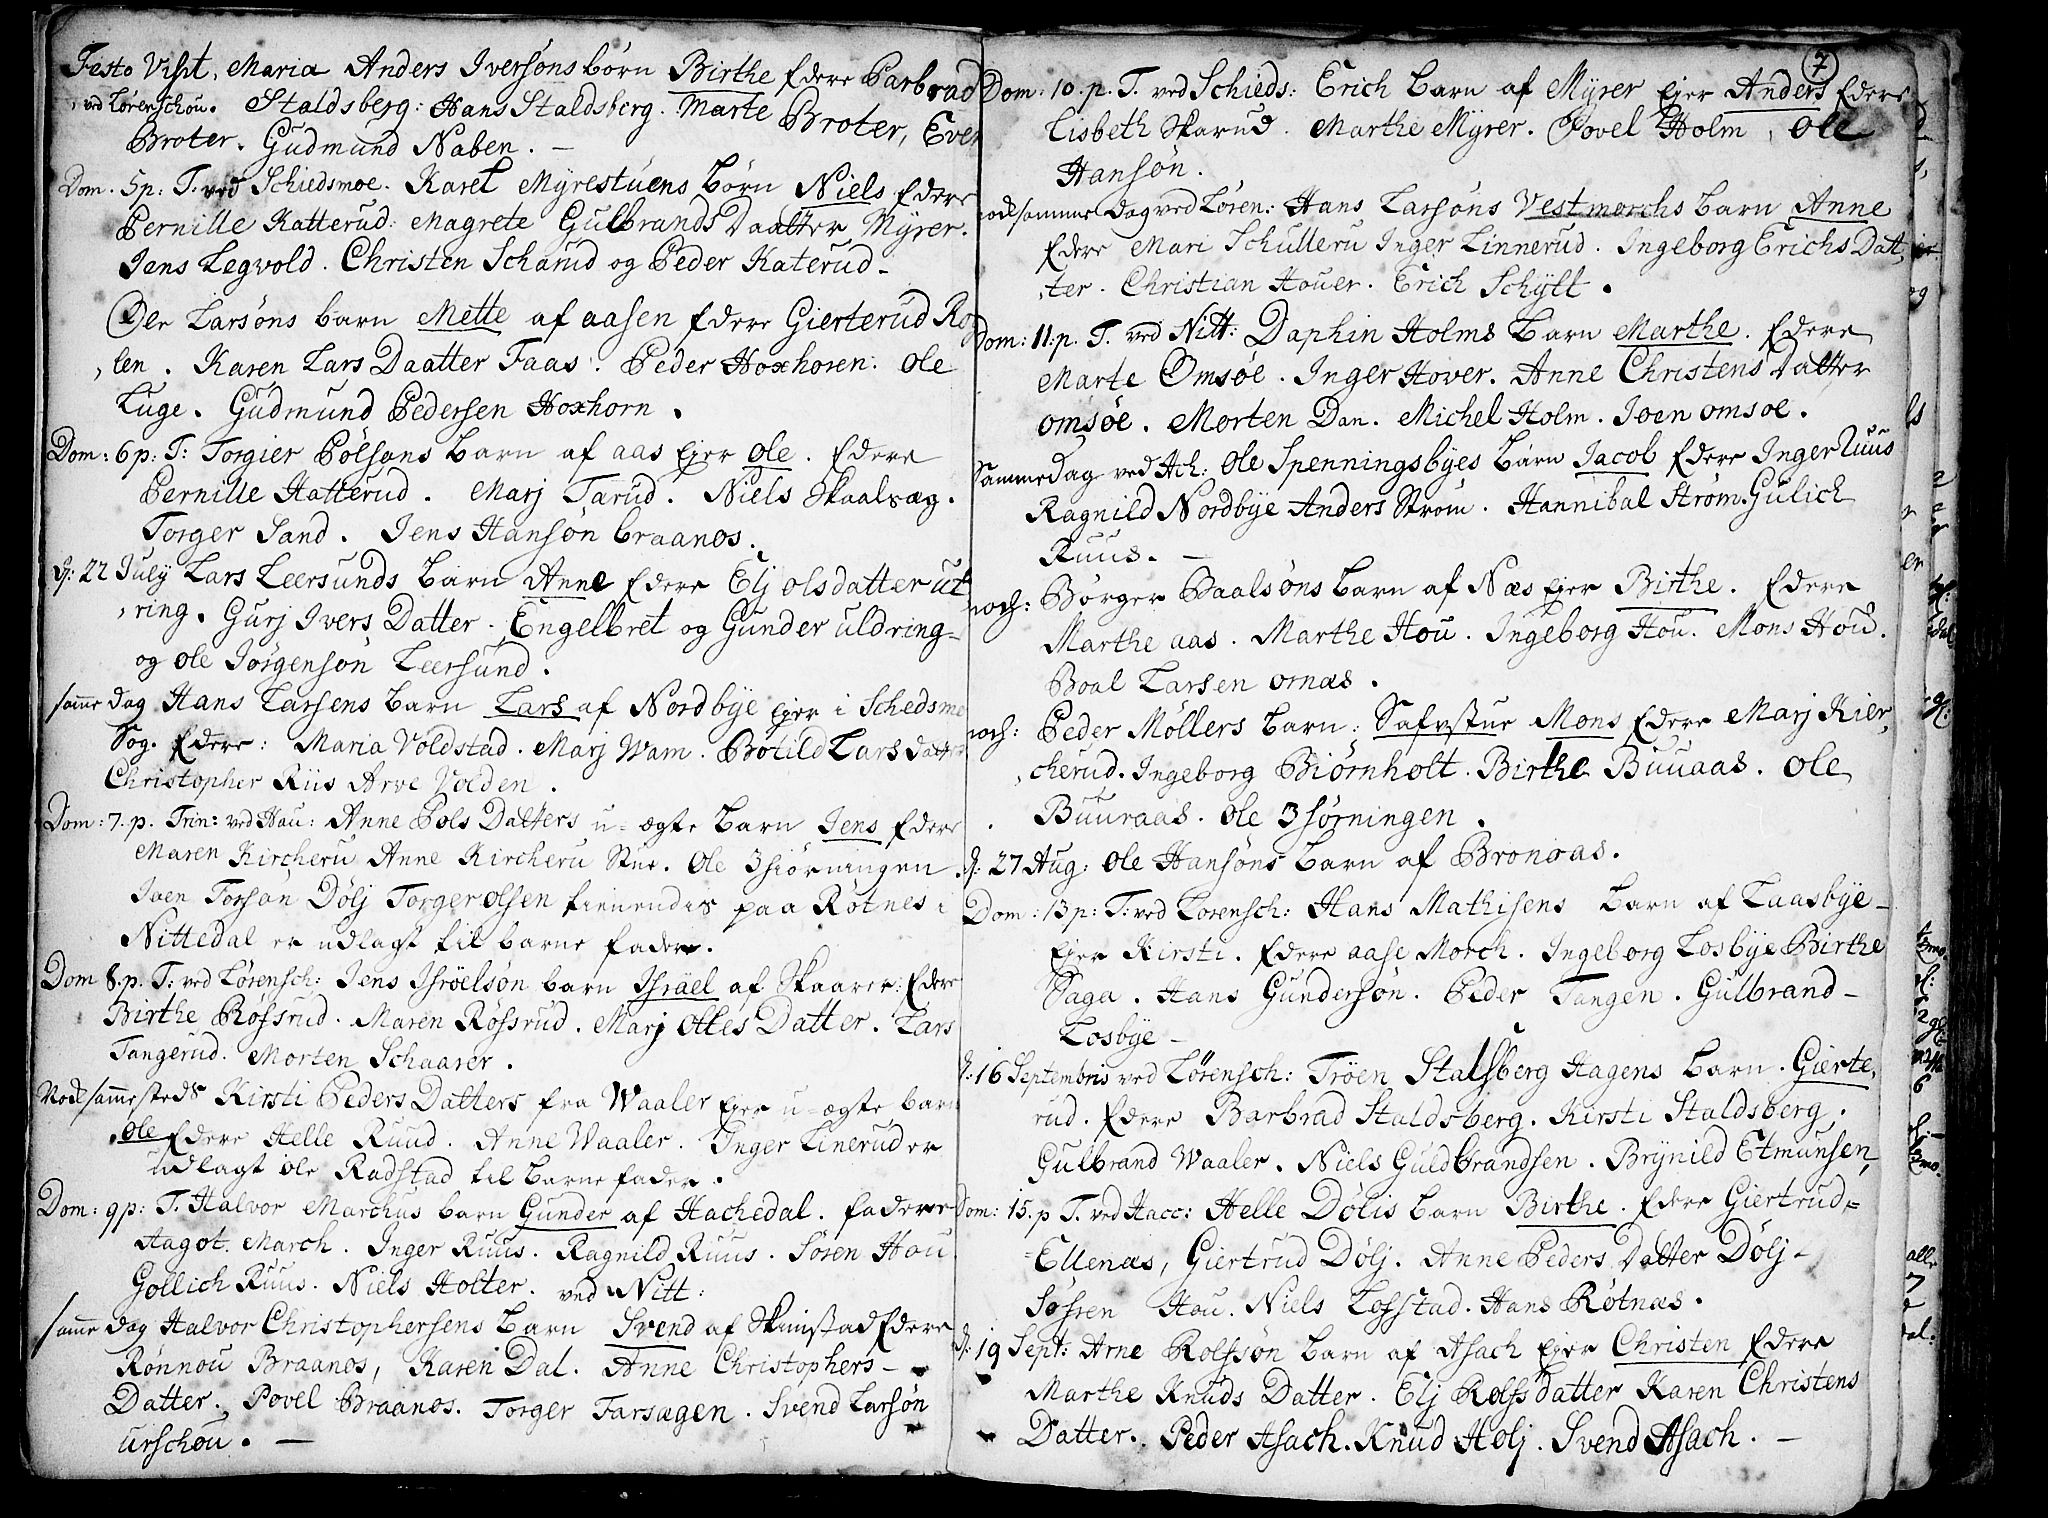 Festo Visit. Maria Anders Iversøns børn Birthe Fdere Barbrad
ved Lørenschou. Staldsberg: Hans Staldsberg. Marte Broter, Even
Broter. Gudmund Naben. —
Dom. 5p: T. ved Schiedsmoe. Karel Myrestuens Børn Niels Fdere
Pernille Katterud: Magrete Gulbrands Daatter Myrer.
Jens Legvold. Christen Scharud og Peder Katerud-
Ole Larsøns barn Mette af aasen Fdere Gierterud Ro,
,len. Karen Lars Daatter Faas: Peder Hoxhoren: Ole
Luge. Gudmund Pedersen Hoxhorn.
Dom: 6p: T: Torgier Pølsøns Barn af aas Ejer Ole. Fdere
Pernille Hatterud. Marj Tarud. Niels Skaalsæg.
Torger Sand. Jens Hansøn braanos.
d: 22 July Lars Leersunds Barn Anne Fdere Elj olsdatter ut
,ring. Gurj Ivers Datter. Engelbret og Gunder uldring-
og ole Jørgensøn Leersund.
samme dag Hans Larsens Barn Lars af Nordbÿe Ejer i Schedsme
Sog. Fdere: Maria Voldstad. Marj Wam. Botild Lars datter
Christopher Riis Arve Volden.
Dom: 7. p. Trin: ved Hau: Anne Pols Datters u=ægte Barn Jens Fdere
Maren Kircheru Anne Kircheru Stue. Ole 3siørningen.
Joen Torsøn Dølj Torger olsen tienendis paa Røtnes i
Nittedal er udlagt til barne fader.
Dom 8. p. T: ved Lørensch: Jens Isröelsøn barn Israel af Skaarer: Fdere
Birthe Røssrud. Maren Røssrud. Marj Olles Datter. Lars
Tangerud. Morten Schaarer.
Nock samme steds Kirsti Peders Datters fra Waaler Ejer u=ægte barn
Ole Fdere Helle Ruud. Anne Waaler. Inger Linerud er
udlagt ole Radstad til Barne fader.
Dom: 9p: T. Halvor Marchus barn Gunder af Hachedal. faderre
Aagot. March. Inger Ruus. Ragnild Ruus. Søren Hou
Gollich Ruus. Niels Holter. ved Nitt:
samme dag Halvor Christophersens Barn Svend af Skimstad Fdere
Rønnou Braanos, Karen Dal. Anne Christophers-
Datter. Povel Braanos. Torger Farsægen. Svend Larsøn
urschou. —
7
Dom: 10. p. T. ved Schieds: Erich Barn af Myrer Ejer Anders Fdere
Lisbeth Skarud. Marthe Myrer. Povel Holm, Ole
Hansøn.
nock samme Dag ved Løren: Hans Larsøns Vestmorchs Barn Anne
Fdere Mari Schulleru Inger Linnerud. Ingeborg Erichs Dat,
,ter. Christian Houer. Erich Schÿtt.
Dom: 11. p. T. ved Nitt: Daphin Holms Barn Marthe. Fdere
Marte Omsøe. Inger Hover. Anne Christens Datter
omsøe. Morten Dan. Michel Holm. Joen omsoe.
Samme dag ved Ach: Ole Spenningsbyes Barn Jacob Fdere Inger Ruus
Ragnild Nordbÿe Anders Strøm. Hannibal Strøm. Gulich
Ruus. —
noch: Børger Baalsøns Barn af Næs Ejer Birthe. Fdere
Marthe aas. Marthe Hou. Ingeborg Hou. Mons Houd.
Boal Larsen ornæs.
noch: Peder Møllers Barn: Safvstue Mons Fdere Marj Kier,
,cherud. Ingeborg Biørnholt. Birthe Buuaas. Ole
Buuraas. Ole 3sørningen.
d: 27 Aug: Ole Hansøns Barn af Bronoas.
Dom: 13p: T: ved Lorensch: Hans Mathisens Barn af Laasbÿe-
Ejer Kirsti. Fdere aase Morch. Ingeborg Losbÿe Birthe
Saga. Hans Gundersøn. Peder Tangen. Gulbrand-
Losbÿe-
d: 16 Septembris ved Lørensch: Trøen Stalsberg Hagens Barn. Gierte,
rud. Fdere Barbrad Staldsberg. Kirsti Staldsberg.
Gulbrand Waaler. Niels Guldbrandsen. Brynild Etmunsen,
Dom: 15. p T. ved Hacc: Helle Dølis Barn Birthe. Fdere Giertrud=
=Ellenæs, Giertrud Dølj. Anne Peders Datter Dølj-
Søfren Hou. Niels Losstad. Hans Røtnæs.
d: 19 Sept: Arne Rolfsøn Barn af Asach Ejer Christen Fdere
Marthe Knuds Datter. Elj Rolfsdatter Karen Christens
Datter. Peder Asach. Knud Holj. Svend Asach. —